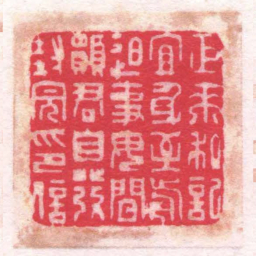 私記
宜身至前
迫事毋閒
願君自發
封完印信